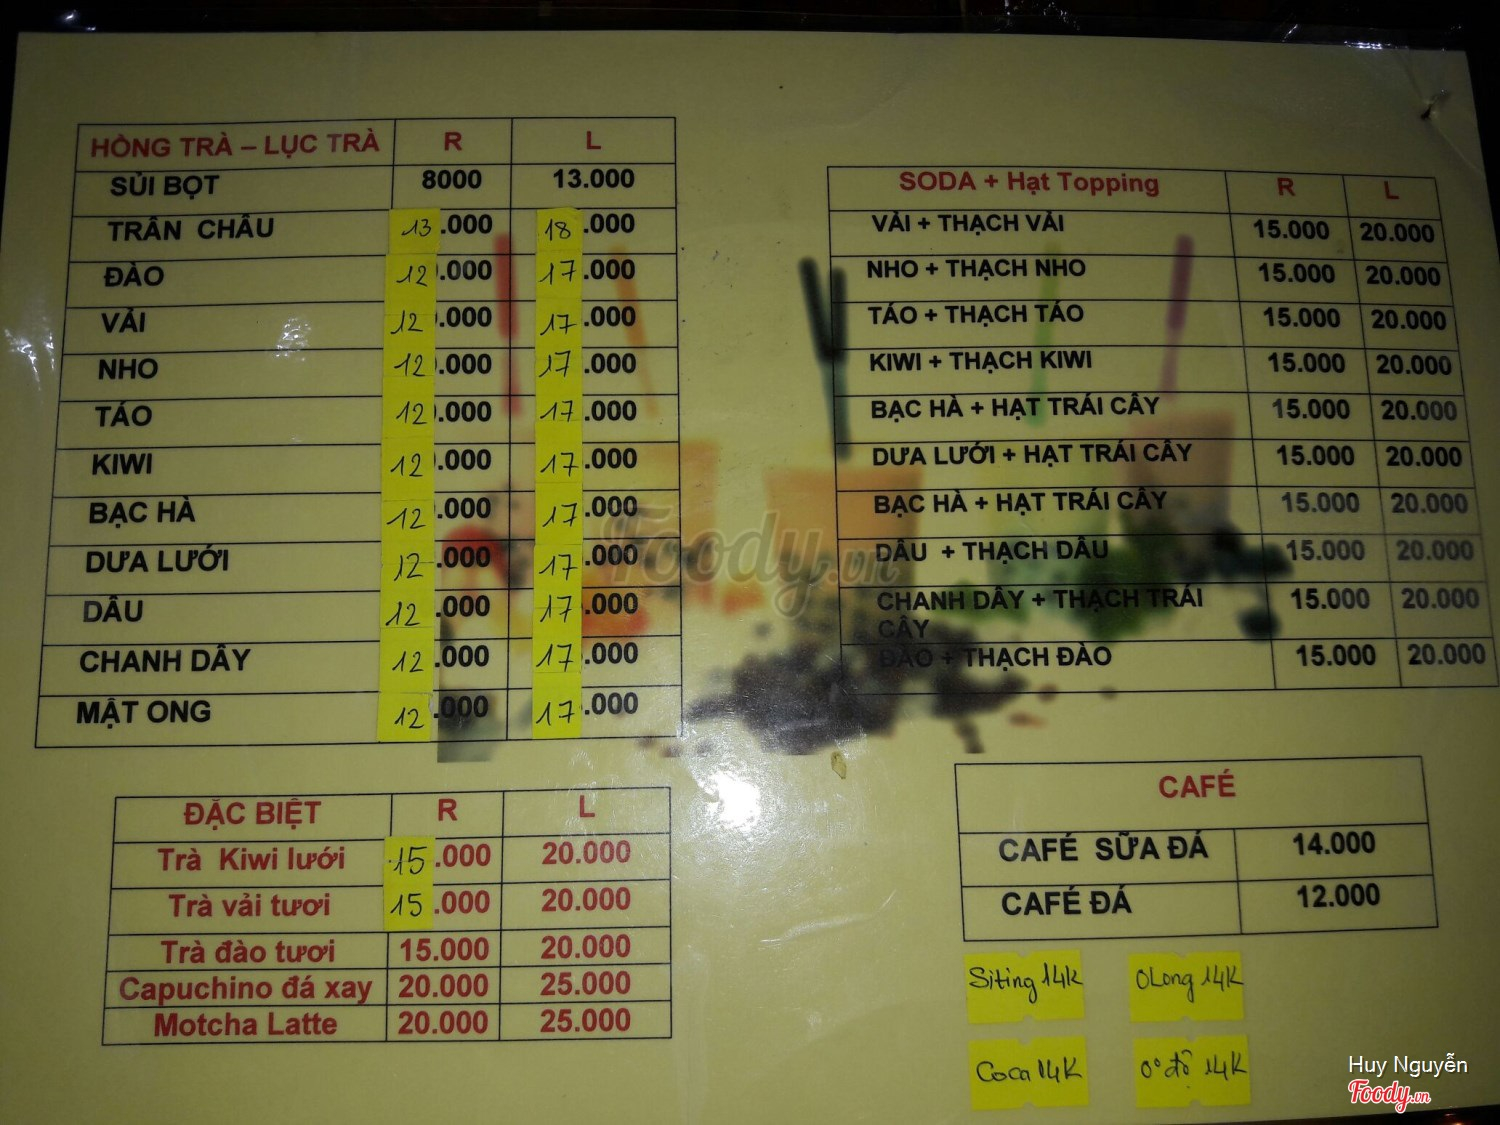 HỒNG TRÀ – LỤC TRÀ R L
SỦI BỌT 8000 13.000
TRÂN CHÂU 13.000 18.000
ĐÀO 12.000 17.000
VẢI 12.000 17.000
NHO 12.000 17.000
TÁO 12.000 17.000
KIWI 12.000 17.000
BẠC HÀ 12.000 17.000
DƯA LƯỚI 12.000 17.000
DÂU 12.000 17.000
CHANH DÂY 12.000 17.000
MẬT ONG 12.000 17.000
SODA + Hạt Topping R L
VẢI + THẠCH VẢI 15.000 20.000
NHO + THẠCH NHO 15.000 20.000
TÁO + THẠCH TÁO 15.000 20.000
KIWI + THẠCH KIWI 15.000 20.000
BẠC HÀ + HẠT TRÁI CÂY 15.000 20.000
DƯA LƯỚI + HẠT TRÁI CÂY 15.000 20.000
BẠC HÀ + HẠT TRÁI CÂY 15.000 20.000
DÂU + THẠCH DÂU 15.000 20.000
CHANH DÂY + THẠCH TRÁI 15.000 20.000
CÂY
ĐÀO + THẠCH ĐÀO 15.000 20.000
Foody.vn
ĐẶC BIỆT R L
Trà Kiwi lưới 15.000 20.000
Trà vải tươi 15.000 20.000
Trà đào tươi 15.000 20.000
Capuchino đá xay 20.000 25.000
Motcha Latte 20.000 25.000
CAFÉ
CAFÉ SỮA ĐÁ 14.000
CAFÉ ĐÁ 12.000
Siting 14K OLong 14K
Coca 14K 0° độ 14K
Huy Nguyễn
Foody.vn